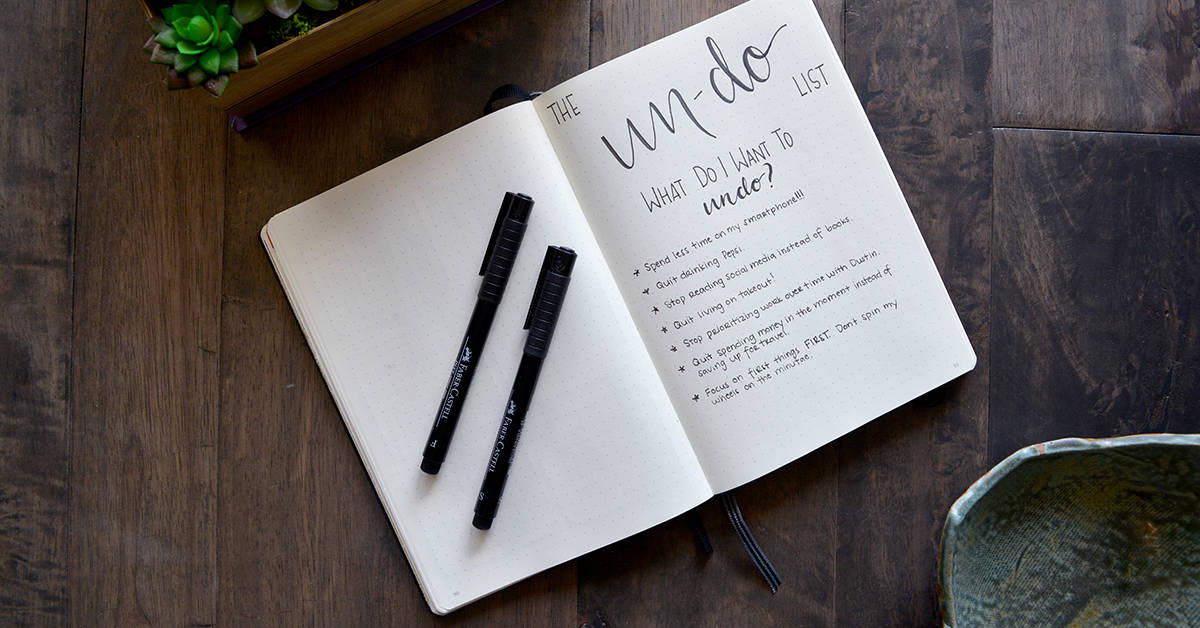 THE un-do LIST
WHAT DO I WANT TO
undo?
* Spend less time on my smartphone!!!
* Quit drinking Pepsi.
* Stop reading social media instead of books.
* Quit living on takeout!
* Stop prioritizing work over time with Dustin.
* Quit spending money in the moment instead of
saving up for travel.
* Focus on first things FIRST. Don't spin my
wheels on the minutae.
FABER-CASTELL
FABER-CASTELL
S